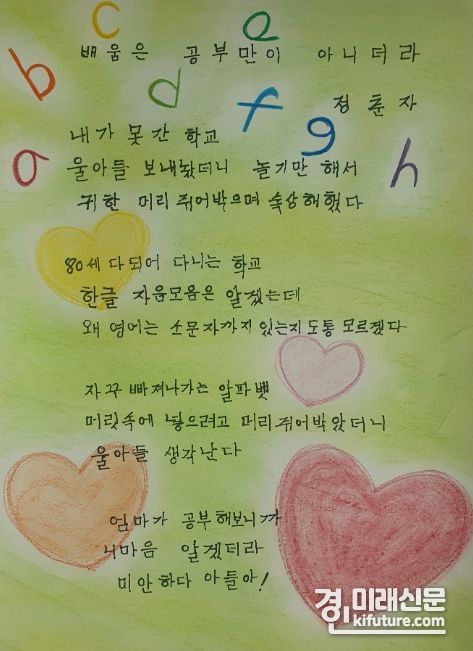 c
e
배움은 공부만이 아니더라
b
d
f
정춘자
g
내가 못간 학교
a
울아들 보내놨더니 놀기만 해서
h
귀한 머리 쥐어박으며 속상해했다
80세 다되어 다니는 학교
한글 자음모음은 알겠는데
왜 영어는 소문자까지 있는지 도통 모르겠다
자꾸 빠져나가는 알파벳
머릿속에 넣으려고 머리 쥐어박았더니
울아들 생각난다
엄마가 공부해보니까
니마음 알겠더라
미안하다 아들아!
경인미래신문
kifuture.com